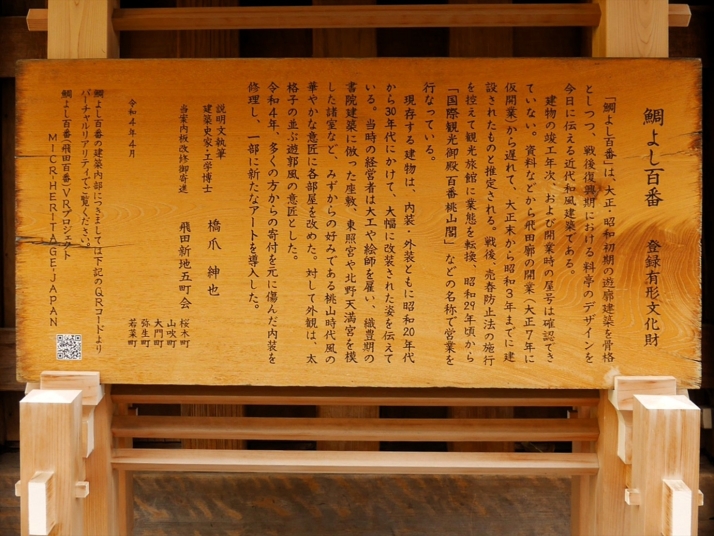 鯛よし百番 登録有形文化財
「鯛よし百番」は、大正・昭和初期の遊廓建築を骨格
としつつ、戦後復興期における料亭のデザインを
今日に伝える近代和風建築である。
建物の竣工年次、および開業時の屋号は確認でき
ていない。資料などから飛田廓の開業（大正7年に
仮開業）から遅れて、大正末から昭和3年までに建
設されたものと推定される。戦後、売春防止法の施行
を控えて観光旅館に業態を転換、昭和29年頃から
「国際観光御殿 百番 桃山閣」などの名称で営業を
行なっている。
現存する建物は、内装・外装ともに昭和20年代
から30年代にかけて、大幅に改装された姿を伝えて
いる。当時の経営者は大工や絵師を雇い、織豊期の
書院建築に倣った座敷、東照宮や北野天満宮を模
した諸室など、みずからの好みである桃山時代風の
華やかな意匠に各部屋を改めた。対して外観は、太
格子の並ぶ遊郭風の意匠とした。
令和4年、多くの方からの寄付を元に傷んだ内装を
修理し、一部に新たなアートを導入した。
説明文執筆
建築史家・工学博士 橋爪 紳也
当案内板改修御寄進 飛田新地五町会
桜木町
山吹町
大門町
弥生町
若菜町
令和4年4月
鯛よし百番の建築内部につきましては下記のQRコードより
バーチャルリアリティでご覧ください。
鯛よし百番(飛田百番)VRプロジェクト
MICR-HERITAGE-JAPAN